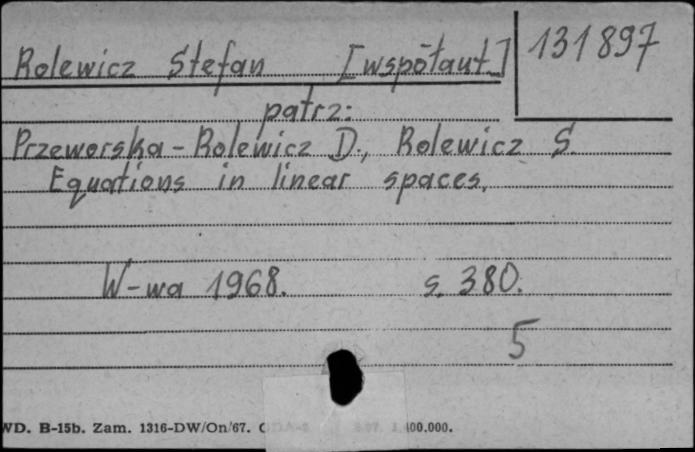 131897
Rolewicz Stefan [współaut.]
patrz:
Przeworska-Rolewicz D., Rolewicz S.
Equations in linear spaces.
W-wa 1968. s. 380.
5
WD. B-15b. Zam. 1316-DW/On/67. 100.000.